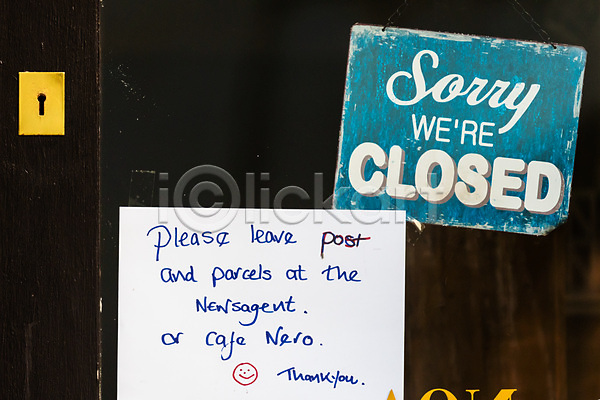 Sorry
WE'RE
CLOSED
iclickart
Please leave post
and parcels at the
Newsagent.
or Cafe Nero.
Thankyou.